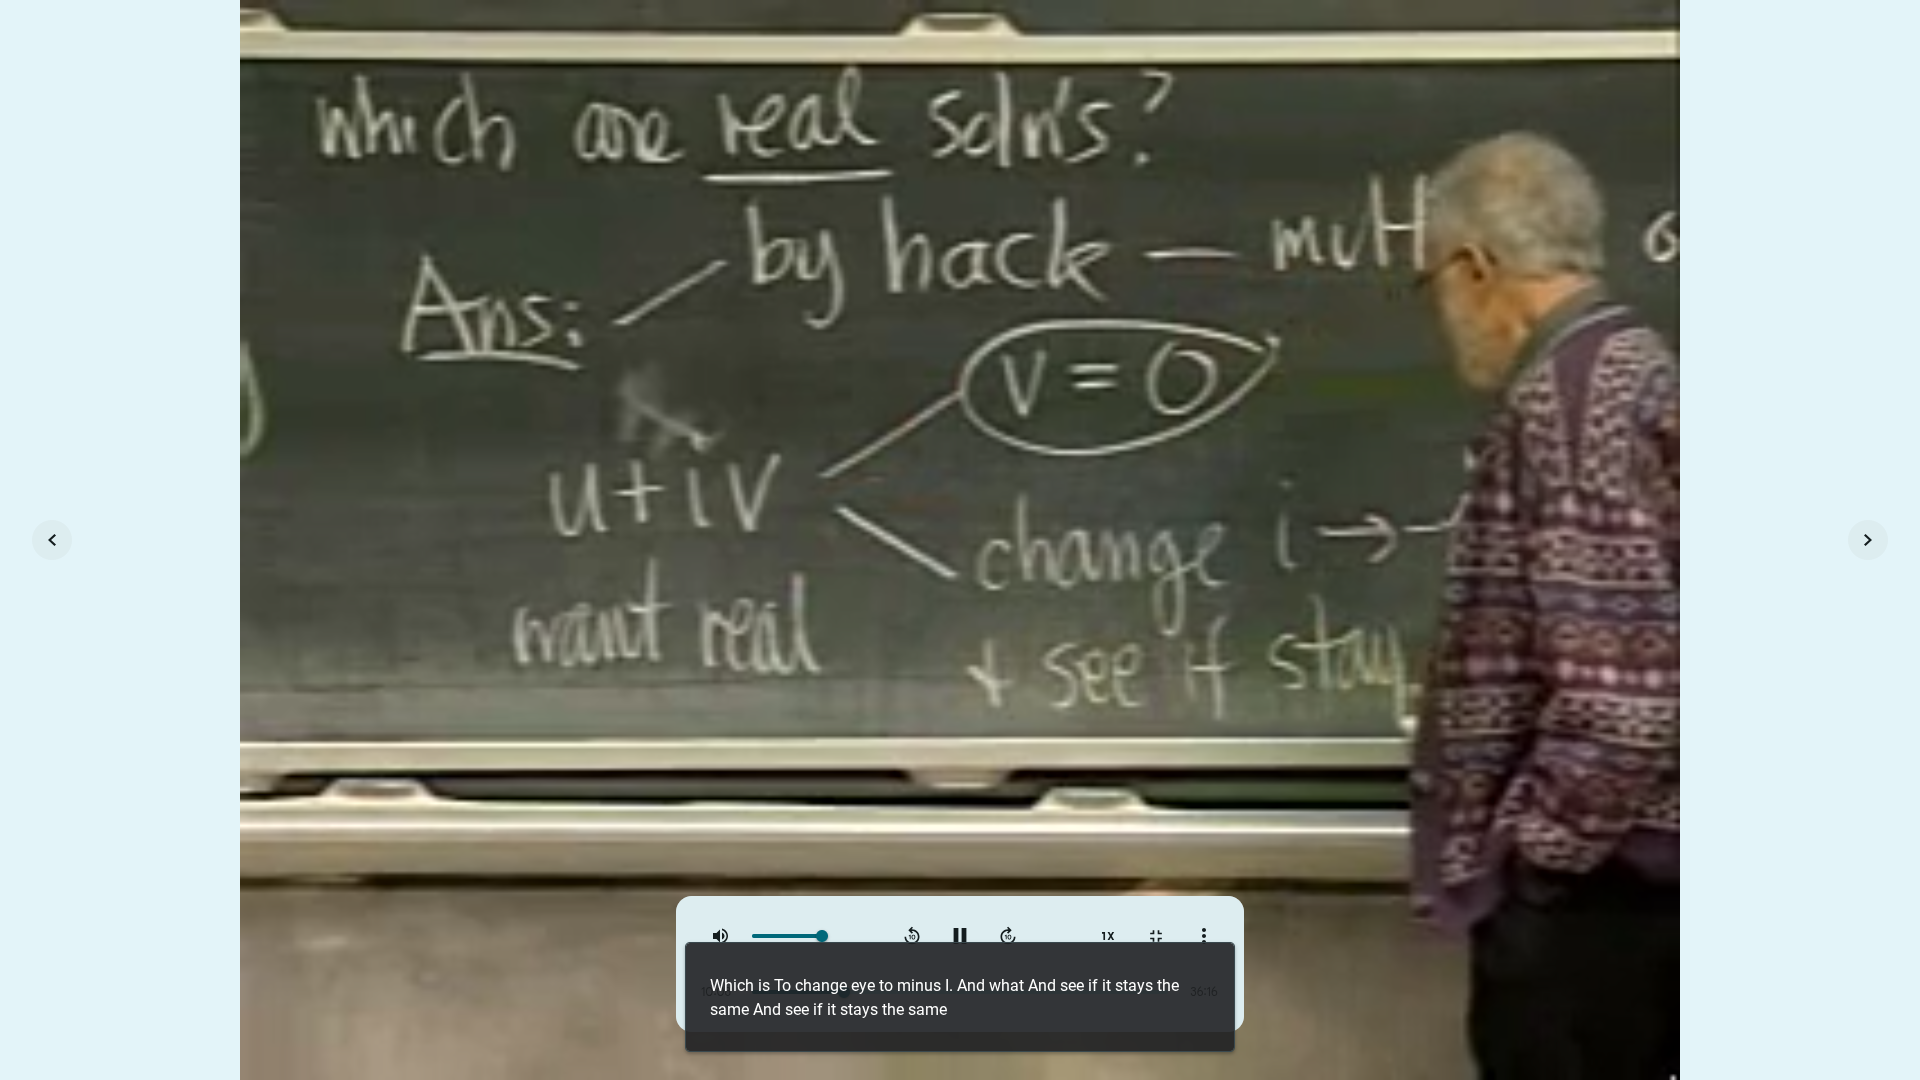 which are real soln's?
Ans: by hack — mult
v = 0
u+iv
change i → -
want real
& see if stay
1X
36:16
Which is To change eye to minus I. And what And see if it stays the
same And see if it stays the same